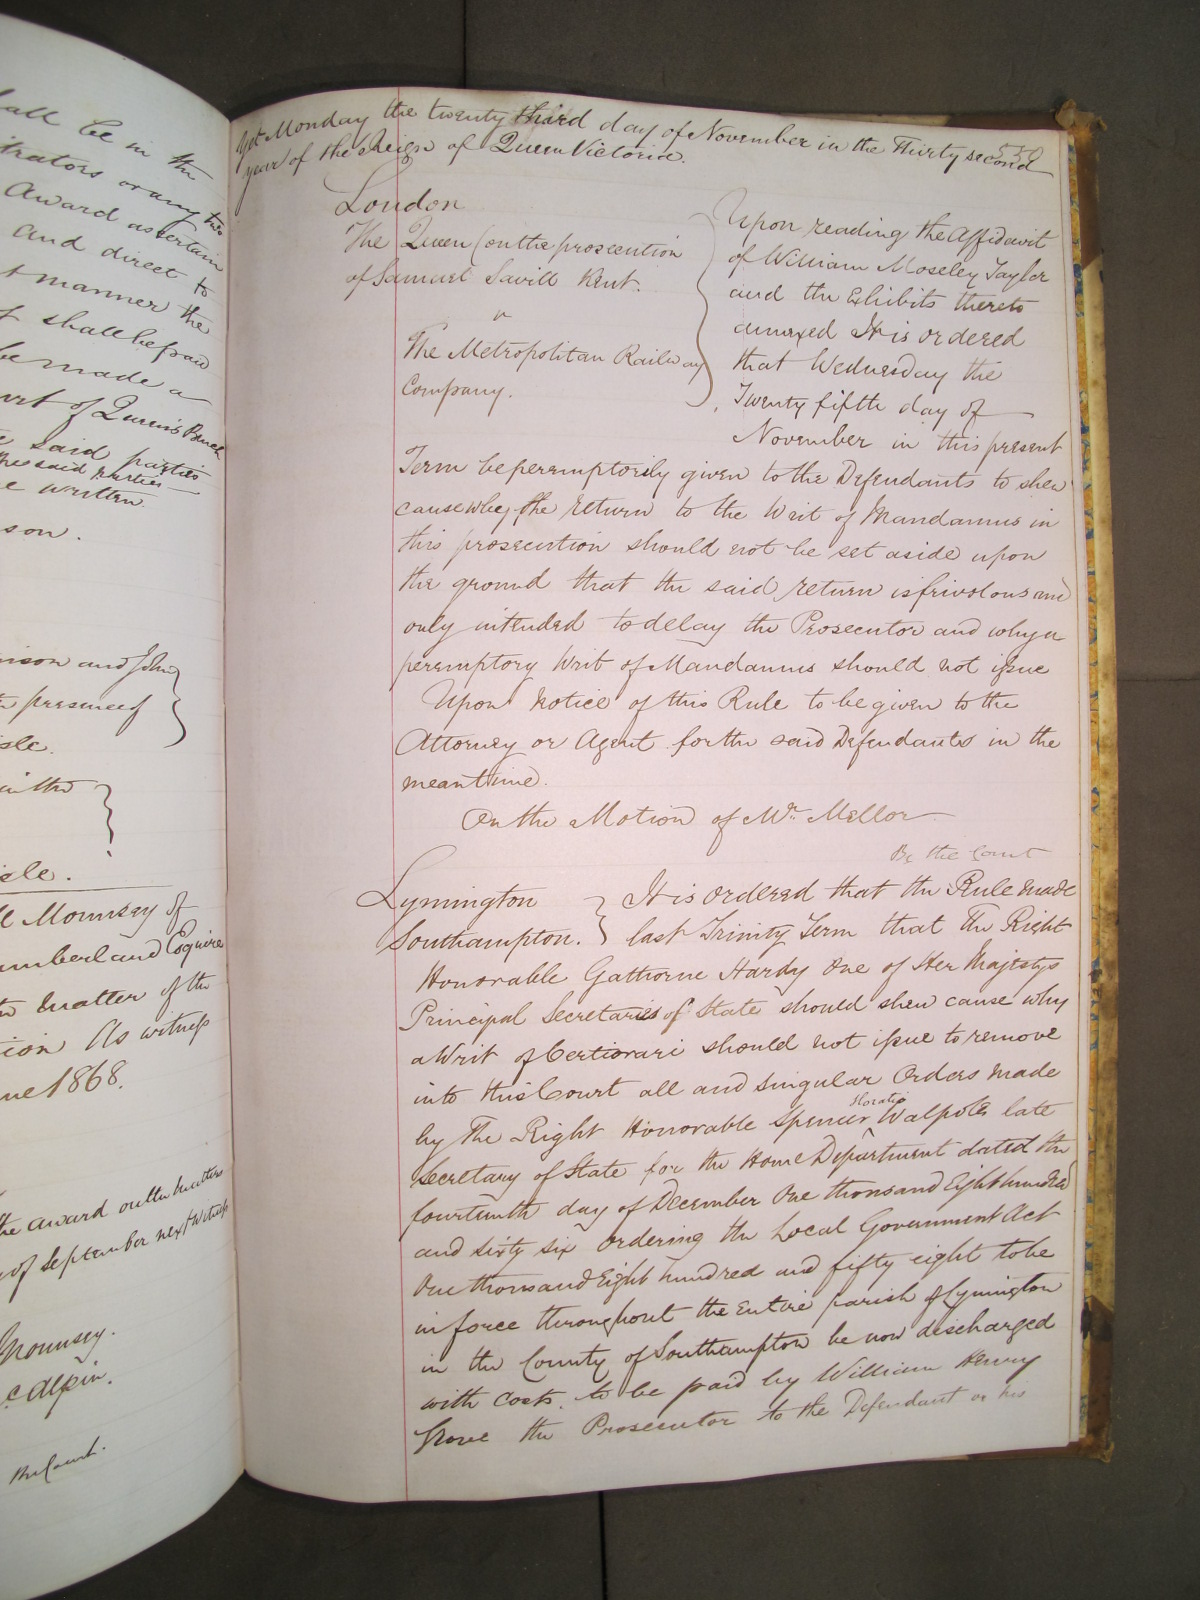 hall be in the
trators or any two
Award ascertain
and direct to
t manner the
t shall be paid
be made a
urt of Queen's Bench
e said parties
the said parties
e written
son.
nison and John
n presence of
isle.
in the
isle.
ll Mounsey of
umberland Esquire
matter of the
tion As witness
une 1868.
the award on the matters
of September next Witness
Mounsey.
c Alpin.
By the Court.
550
Yet Monday the twenty third day of November in the Thirty second
year of the Reign of Queen Victoria.
London
The Queen (on the prosecution
of Samuel Savill Kent.
v
The Metropolitan Railway
Company.
Upon reading the Affidavit
of William Moseley Taylor
and the Exhibits thereto
annexed It is ordered
that Wednesday the
Twenty fifth day of
November in this present
Term be peremptorily given to the Defendants to shew
cause why the return to the Writ of Mandamus in
this prosecution should not be set aside upon
the ground that the said return is frivolous and
only intended to delay the Prosecutor and why a
peremptory Writ of Mandamus should not issue
Upon notice of this Rule to be given to the
Attorney or Agent for the said Defendants in the
meantime.
On the Motion of Mr. Mellor
By the Court
Lymington
Southampton.
It is ordered that the Rule made
last Trinity Term that the Right
Honorable Gathorne Hardy one of Her Majestys
Principal Secretaries of State should shew cause why
a Writ of Certiorari should not issue to remove
into this Court all and singular Orders made
by The Right Honorable Spencer Horatio Walpole late
Secretary of State for the Home Department dated the
fourteenth day of December One thousand Eight hundred
and sixty six ordering the Local Government Act
One thousand Eight hundred and fifty eight to be
in force throughout the entire parish of Lymington
in the County of Southampton be now discharged
with costs to be paid by William Henry
the Prosecutor to the Defendant or his